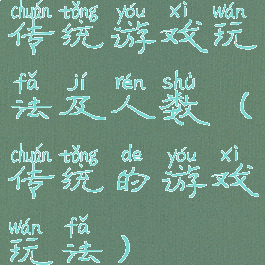 chuán tǒng yóu xì wán
传统游戏玩
fǎ jí rén shù
法及人数（
chuán tǒng de yóu xì
传统的游戏
wán fǎ
玩法）